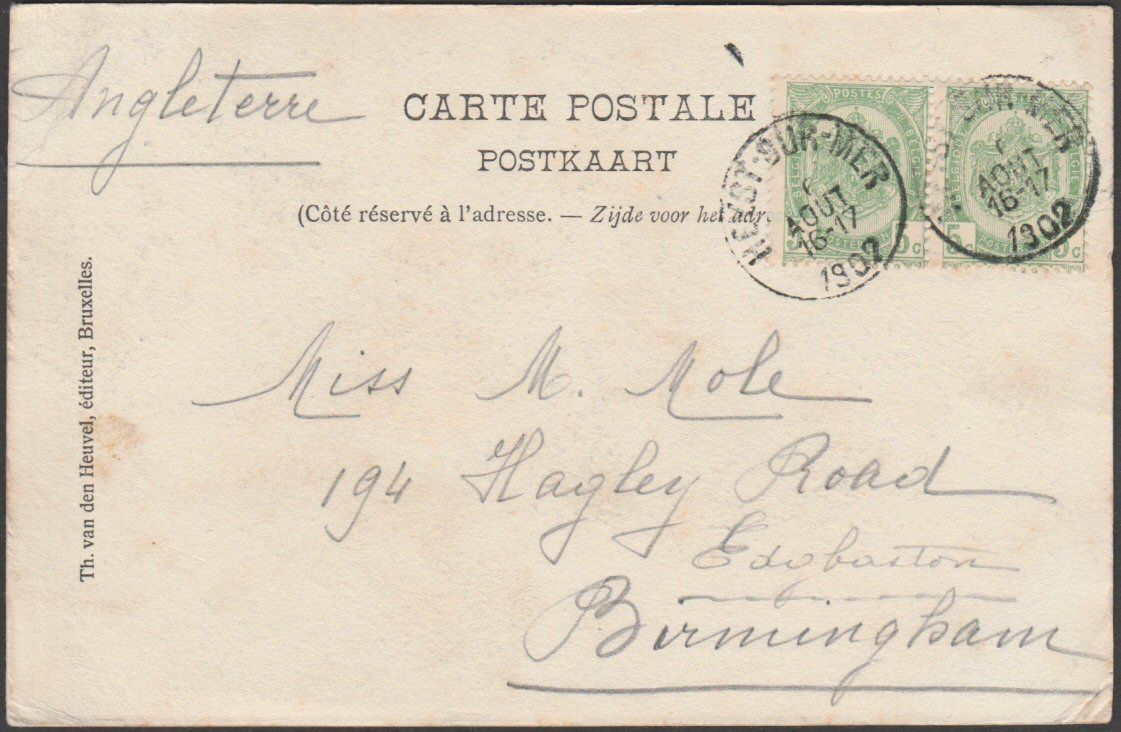 Angleterre
CARTE POSTALE
POSTKAART
(Côté réservé à l'adresse. — Zijde voor het adr
POSTES
5 c
5 c
POSTES
HEYST-SUR-MER
6
AOUT
16-17
1902
SUR-MER
6
AOUT
16-17
1902
Miss M. Mole
194 Hagley Road
Edgbaston
Birmingham
Th. van den Heuvel, éditeur, Bruxelles.